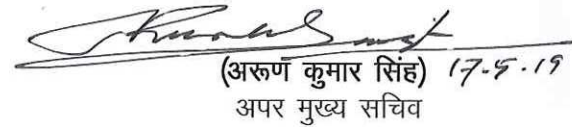 (अरूण कुमार सिंह) 17.5.19
अपर मुख्य सचिव